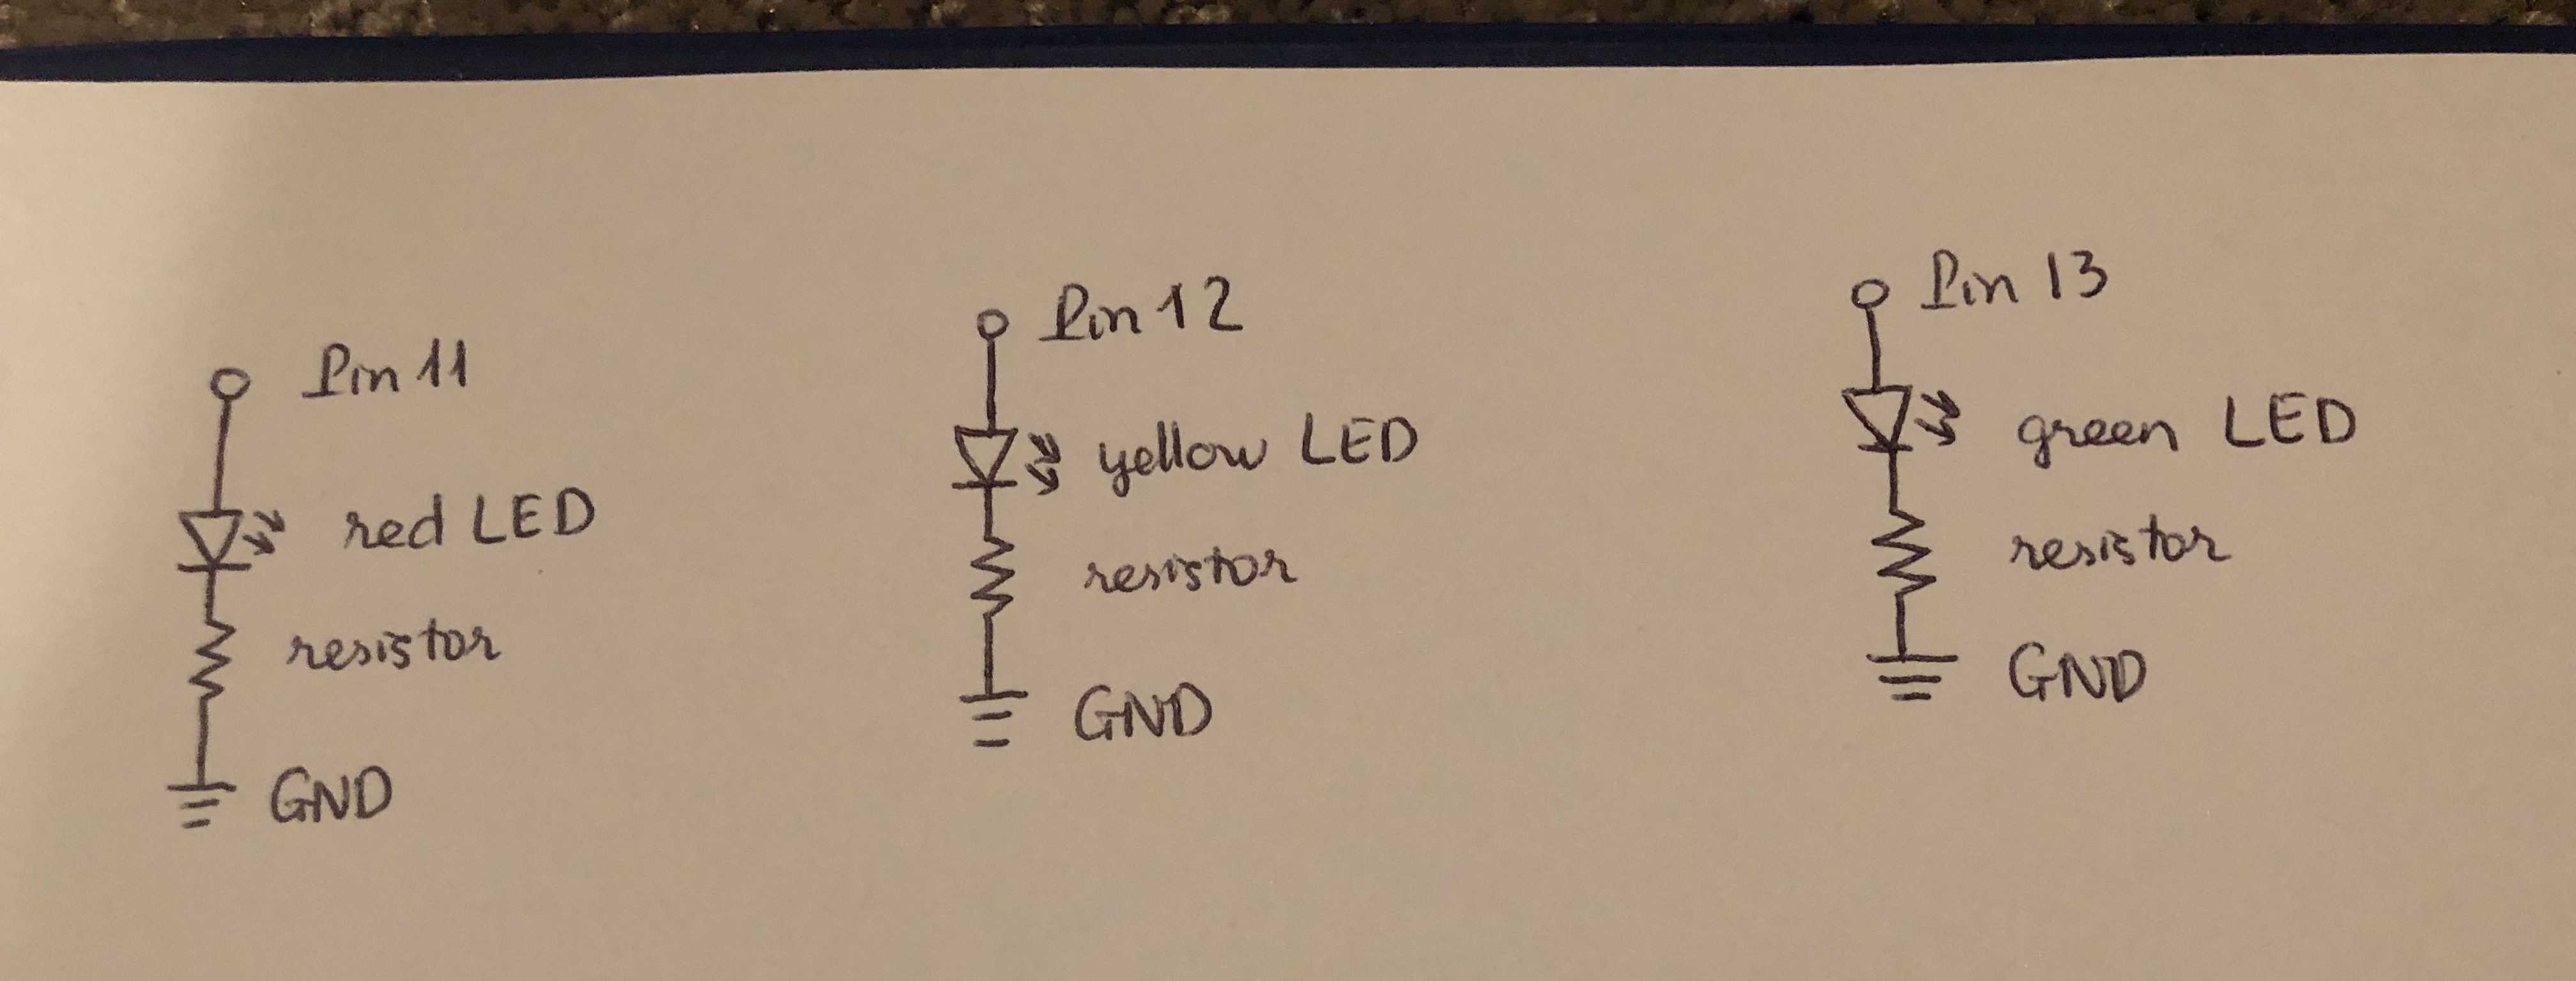 Pin 11
red LED
resistor
GND
Pin 12
yellow LED
resistor
GND
Pin 13
green LED
resistor
GND